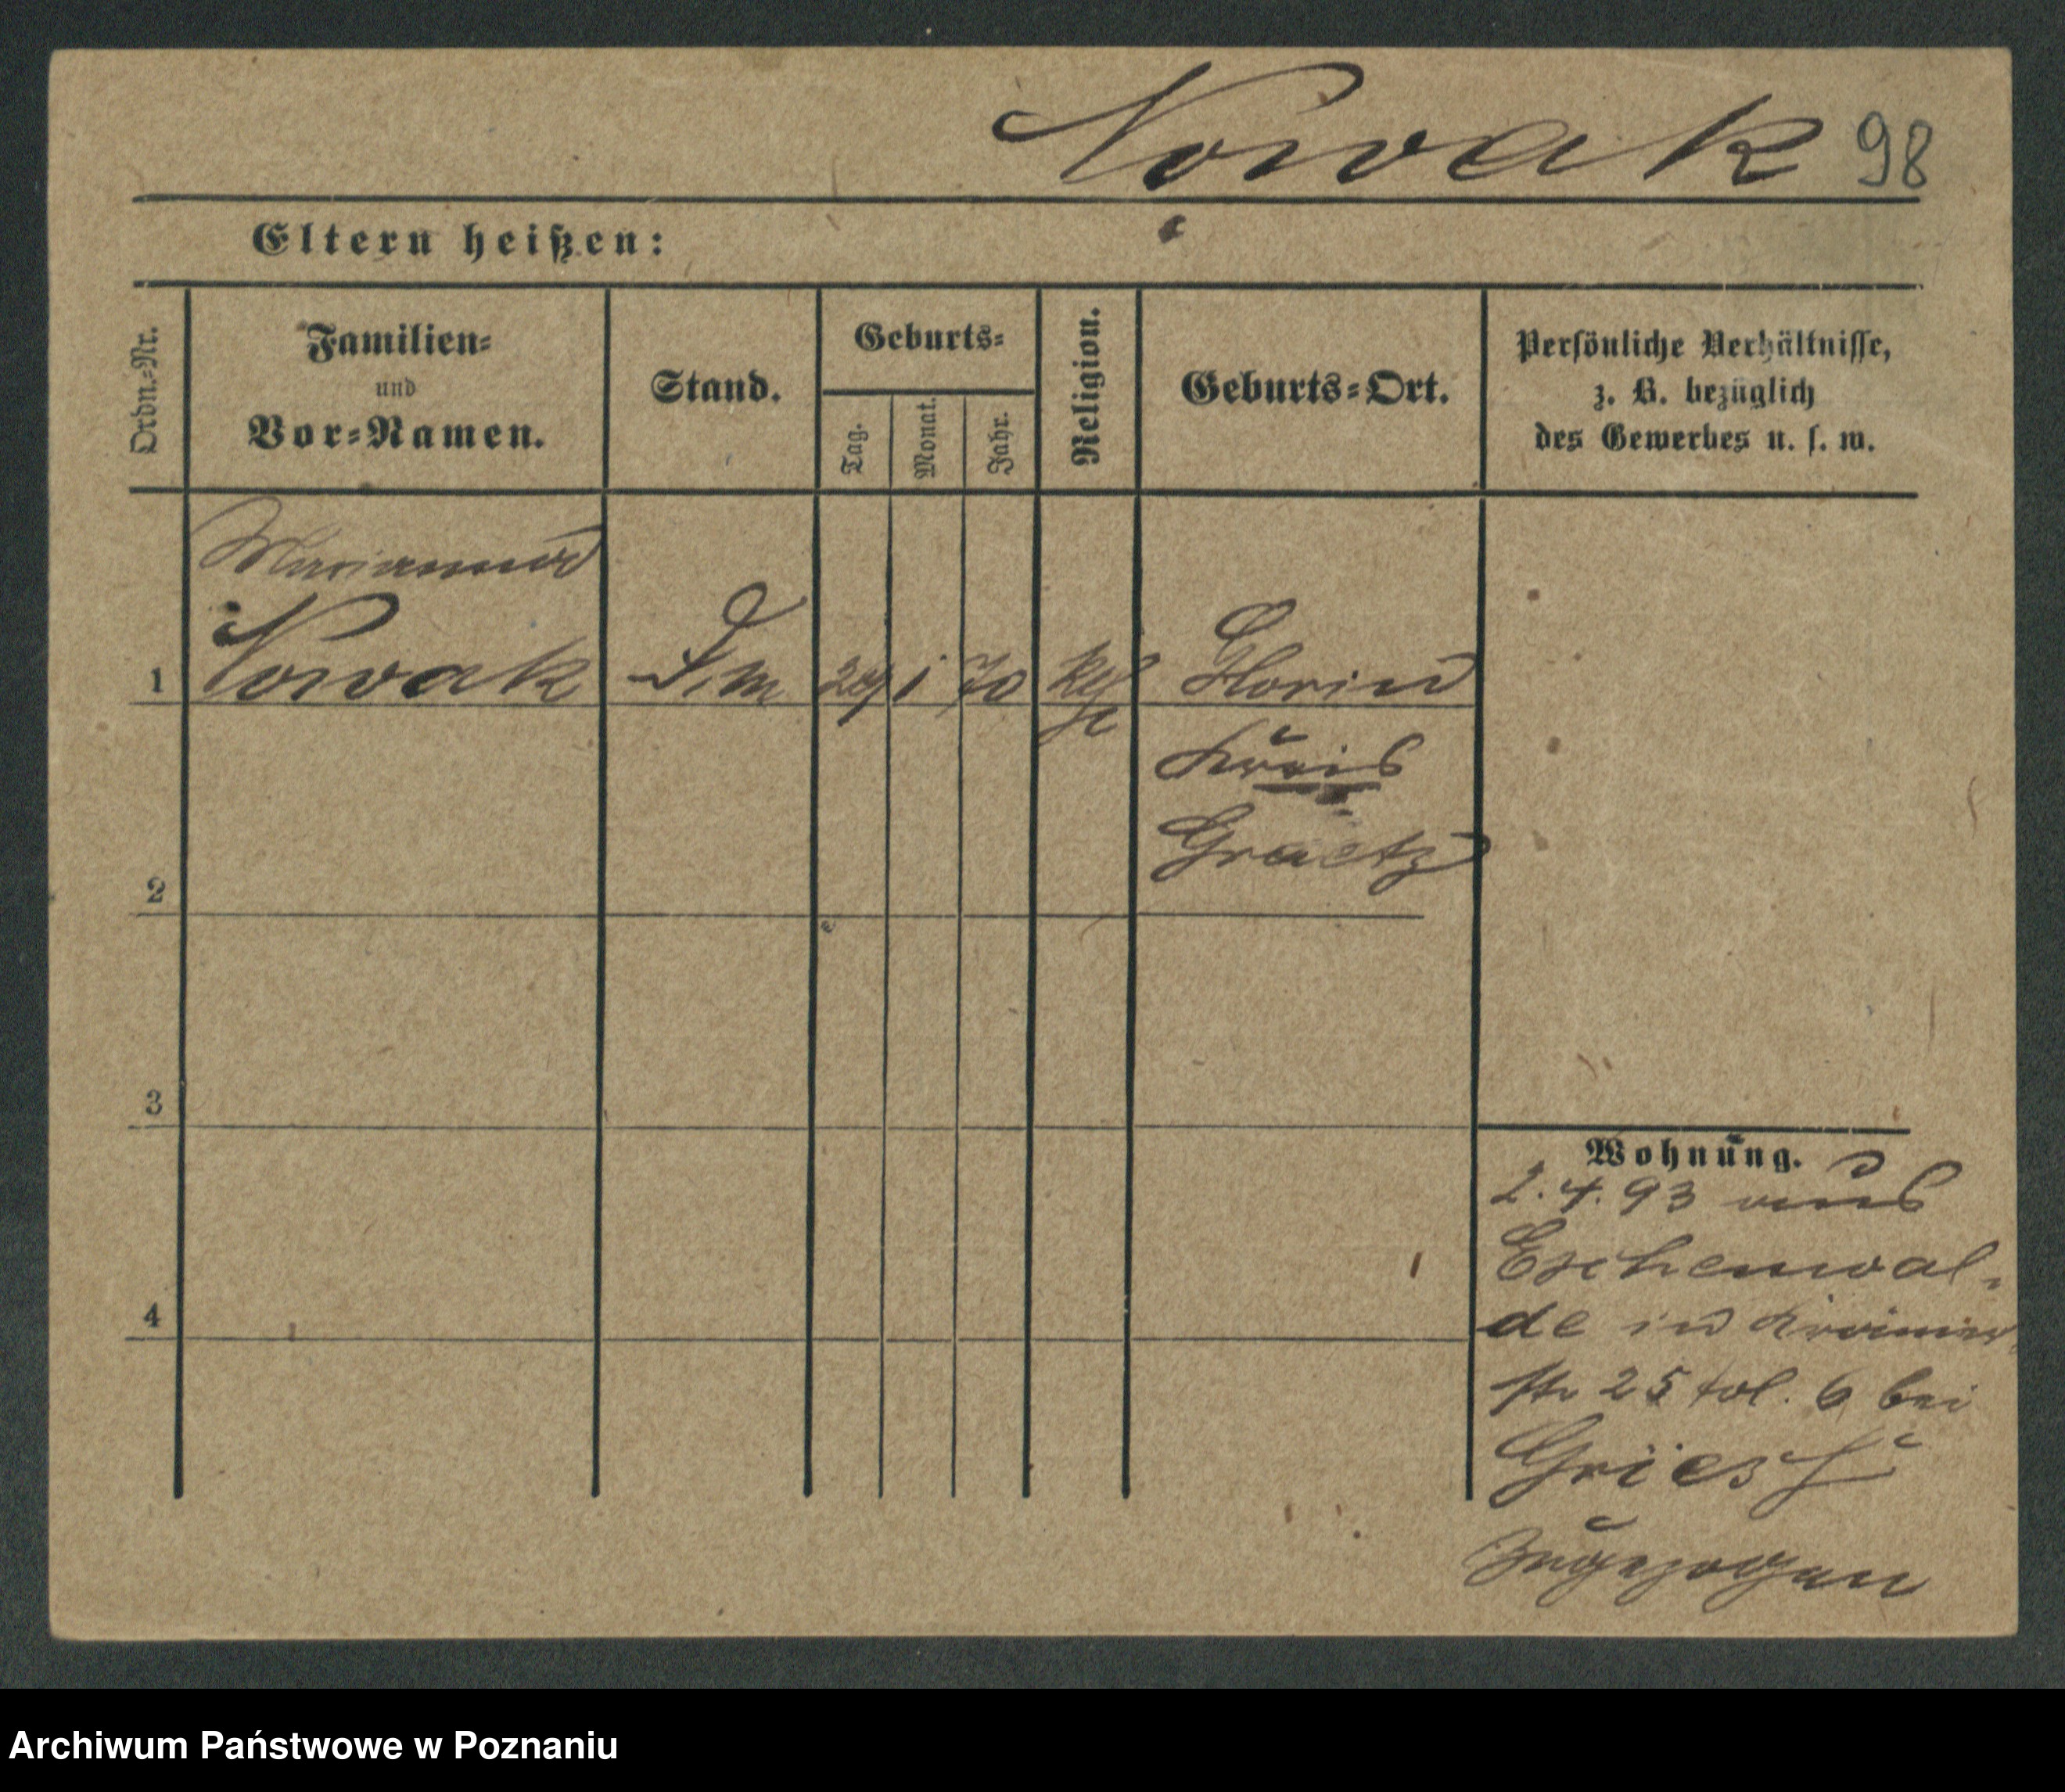 Nowak 98
Eltern heißen:
Ordn.=Nr.
Familien=
und
Vor=Namen.
Stand.
Geburts=
Tag.
Monat.
Jahr.
Religion.
Geburts=Ort.
Persönliche Verhältnisse,
z. B. bezüglich
des Gewerbes u. s. w.
Marianna
1 Nowak 1 70 Florin
Kreis
Graetz
2
3
4
Wohnung.
2.4.93 aus
Eschenwal-
de in
str 25 6 bei
zugezogen
Archiwum Państwowe w Poznaniu